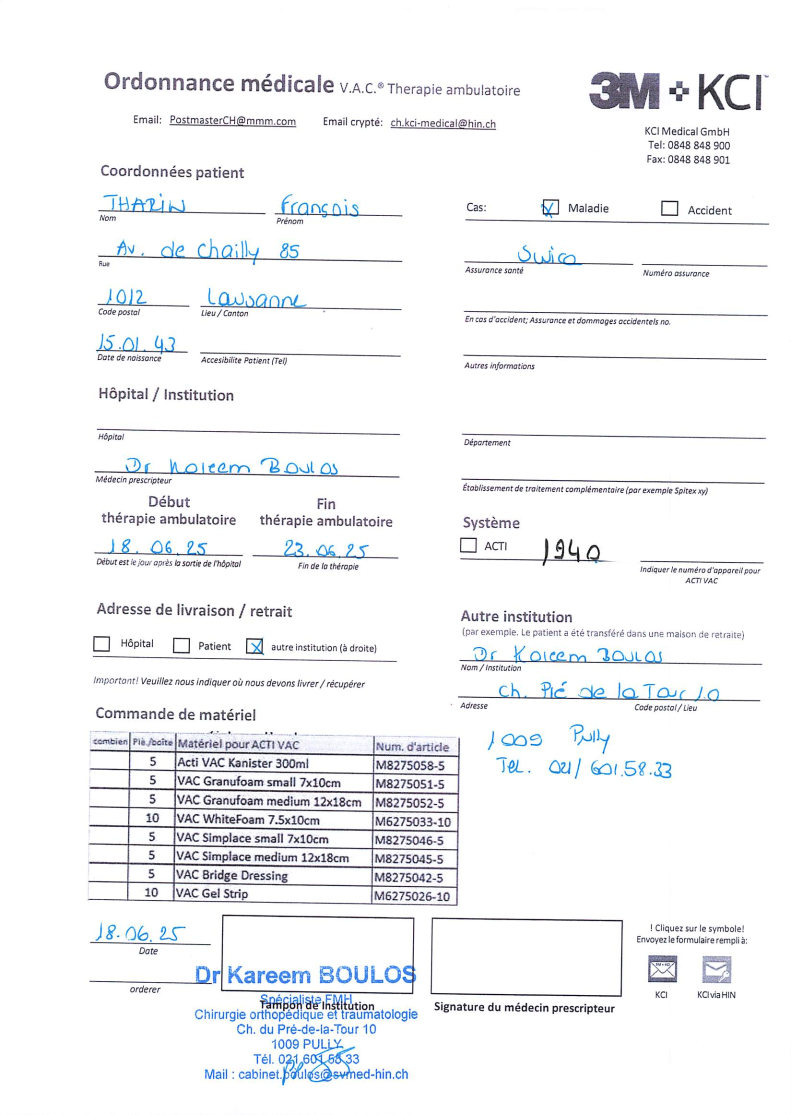 Ordonnance médicale V.A.C.® Therapie ambulatoire
3M KCI™
Email: PostmasterCH@mmm.com Email crypté: ch.kci-medical@hin.ch
KCI Medical GmbH
Tel: 0848 848 900
Fax: 0848 848 901
Coordonnées patient
THARIN François
Nom Prénom
Cas: Maladie Accident
Av. de Chailly 85
Rue
Swica
Assurance santé Numéro assurance
1012 Lausanne
Code postal Lieu / Canton
En cas d'accident; Assurance et dommages accidentels no.
15.01.43
Date de naissance Accesibilite Patient (Tel)
Autres informations
Hôpital / Institution
Hôpital
Département
Dr Kareem BOULOS
Médecin prescripteur
Établissement de traitement complémentaire (par exemple Spitex xy)
Début thérapie ambulatoire
Fin thérapie ambulatoire
18.06.25 23.06.25
Début est le jour après la sortie de l'hôpital Fin de la thérapie
Système
ACTI 1940
Indiquer le numéro d'appareil pour
ACTI VAC
Adresse de livraison / retrait
Hôpital Patient autre institution (à droite)
Important! Veuillez nous indiquer où nous devons livrer / récupérer
Autre institution
(par exemple. Le patient a été transféré dans une maison de retraite)
Dr Kareem BOULOS
Nom / Institution
Ch. Pré de la Tour 10
Adresse Code postal / Lieu
1009 Pully
Tel. 021/601.58.33
Commande de matériel
combien Piè./boîte Matériel pour ACTI VAC Num. d'article
5 Acti VAC Kanister 300ml M8275058-5
5 VAC Granufoam small 7x10cm M8275051-5
5 VAC Granufoam medium 12x18cm M8275052-5
10 VAC WhiteFoam 7.5x10cm M6275033-10
5 VAC Simplace small 7x10cm M8275046-5
5 VAC Simplace medium 12x18cm M8275045-5
5 VAC Bridge Dressing M8275042-5
10 VAC Gel Strip M6275026-10
18.06.25
Date
orderer
Dr Kareem BOULOS
Spécialiste FMH
Tampon de Institution
Chirurgie orthopédique et traumatologie
Ch. du Pré-de-la-Tour 10
1009 PULLY
Tél. 021 601 58 33
Mail : cabinet.boulos@svmed-hin.ch
Signature du médecin prescripteur
! Cliquez sur le symbole!
Envoyez le formulaire rempli à:
KCI KCI via HIN